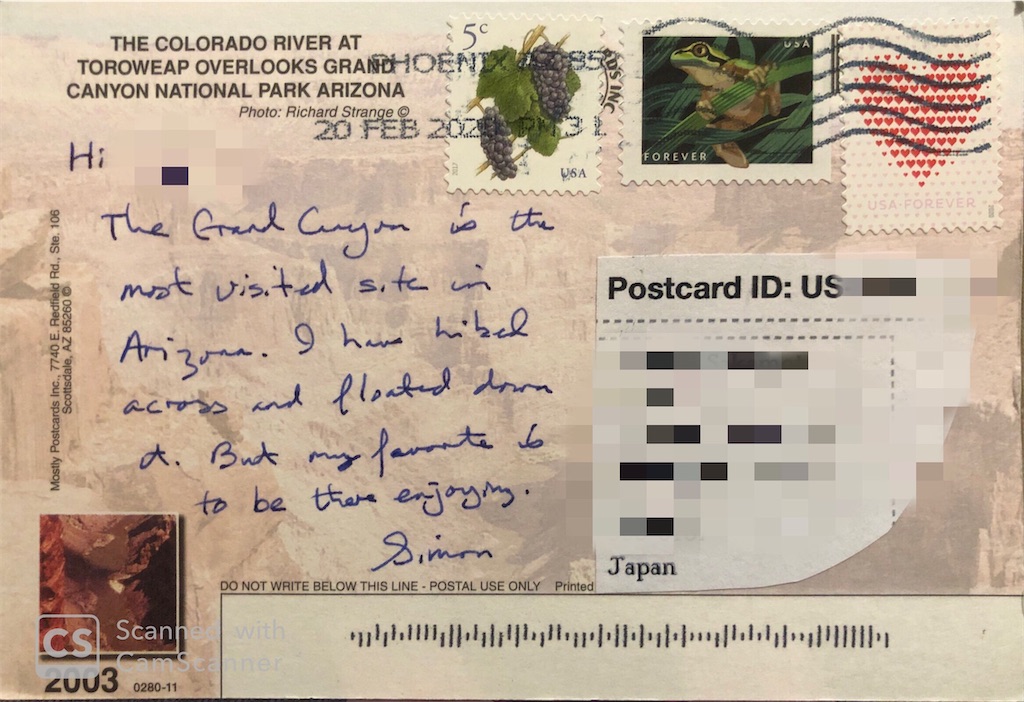 THE COLORADO RIVER AT
TOROWEAP OVERLOOKS GRAND
CANYON NATIONAL PARK ARIZONA
Photo: Richard Strange ©
PHOENIX AZ 85
20 FEB 2020 PM 3 L
5c
USA
2017
USA
FOREVER
USA FOREVER
Hi
The Grand Canyon is the
most visited site in
Arizona. I have hiked
across and floated down
it. But my favorite is
to be there enjoying.
Simon
Mostly Postcards Inc., 7740 E. Redfield Rd., Ste. 106
Scottsdale, AZ 85260 ©
Postcard ID: US
Japan
DO NOT WRITE BELOW THIS LINE - POSTAL USE ONLY Printed
CS Scanned with
CamScanner
2003 0280-11